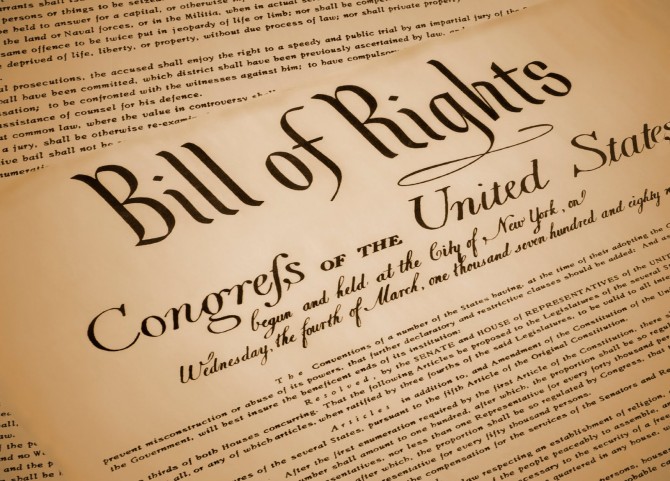 persons or things to be seized
be held to answer for a capital, or otherwise
the land or Naval forces, or in the Militia, when in actual
same offence to be twice put in jeopardy of life or limb; nor shall be
deprived of life, liberty, or property, without due process of law; nor shall private property
prosecutions, the accused shall enjoy the right to a speedy and public trial by an impartial jury of the
have been committed, which district shall have been previously ascertained by law, and
to be confronted with the witnesses against him; to have
assistance of counsel for his defence.
common law, where the value in controversy shall
a jury, shall be otherwise
bail shall not be
Bill of Rights
Congreſs OF THE United States
begun and held at the City of New York, on
Wednesday, the fourth of March, one thousand seven hundred and eighty
The Conventions of a number of the States having, at the time of their adopting the
prevent misconstruction or abuse of its powers, that further declaratory and restrictive clauses should be added: And
the Government, will best insure the beneficent ends of its institution:
Resolved, by the SENATE and HOUSE of REPRESENTATIVES of the
thirds of both Houses concurring. That the following Articles be proposed to the Legislatures of the several
all, or any of which articles, when ratified by three fourths of the said Legislatures, to be valid to all
Articles in addition to, and Amendment of the Constitution of the
of the several States, pursuant to the fifth Article of the Original Constitution.
After the first enumeration required by the first Article of the Constitution, there
number shall amount to one hundred, after which, the proportion shall be so
nor less than one Representative for every forty thousand
after which, the proportion shall be so regulated by Congress, that
for every fifty thousand persons.
compensation for the services of the Senators and
law respecting an establishment of religion,
the people peaceably to assemble,
to the security of a free
quartered in any house,